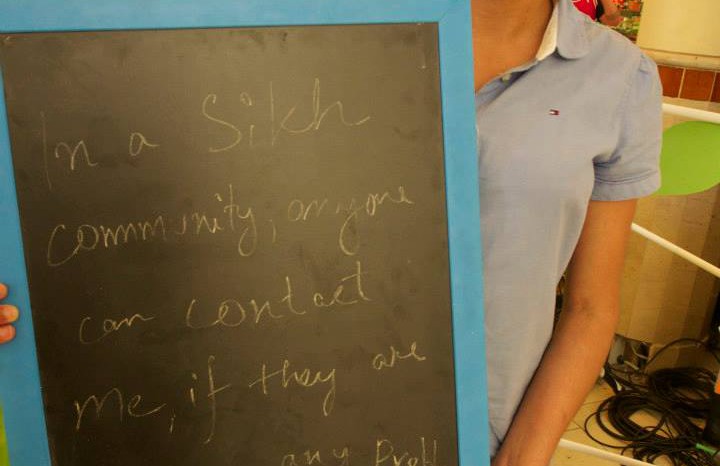 In a Sikh
community, anyone
can contact
me, if they are
any